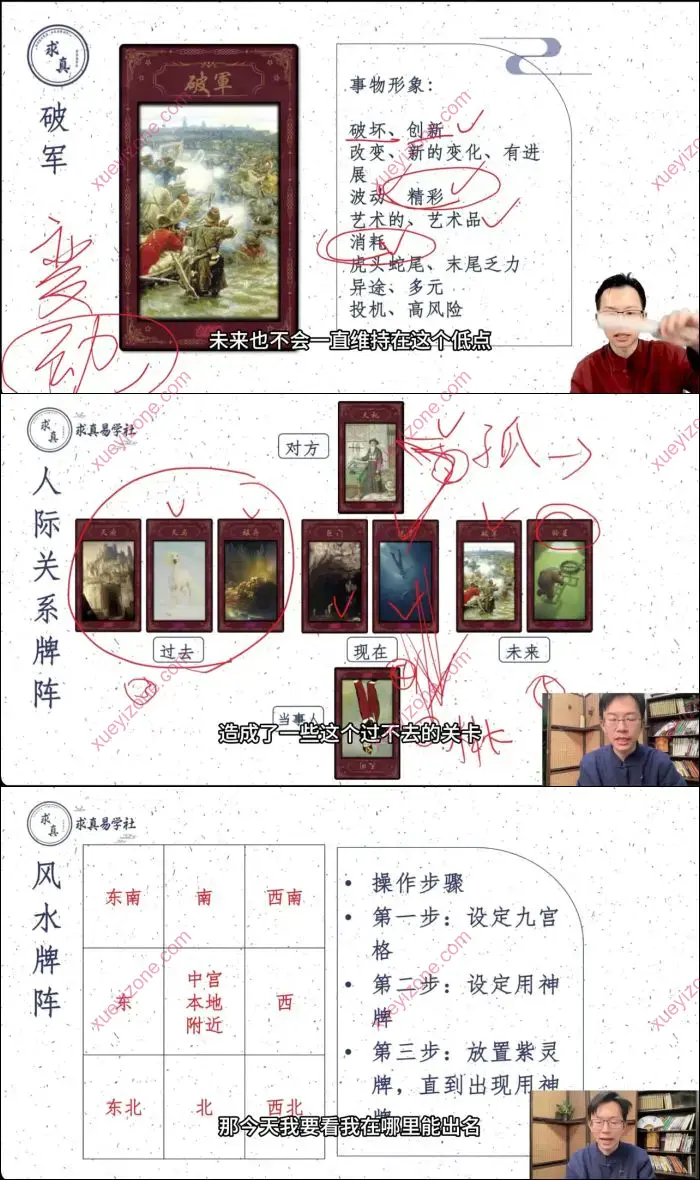 求真
破军
破軍
事物形象：
破坏、创新
改变、新的变化、有进
展
波动 精彩
艺术的、艺术品
消耗
虎头蛇尾、末尾乏力
异途、多元
投机、高风险
变
动
未来也不会一直维持在这个低点
xueyizone.com
xueyizone.com
xueyizone.com
求真
求真易学社
人际关系牌阵
对方
天机
孤
巨门
铃星
过去
现在
未来
当事人
造成了一些这个过不去的关卡
xueyizone.com
xueyizone.com
xueyizone.com
求真
求真易学社
风水牌阵
东南
南
西南
东
中宫
本地
附近
西
东北
北
西北
• 操作步骤
• 第一步：设定九宫
格
• 第二步：设定用神
牌
• 第三步：放置紫灵
牌，直到出现用神
牌
那今天我要看我在哪里能出名
xueyizone.com
xueyizone.com
xueyizone.com